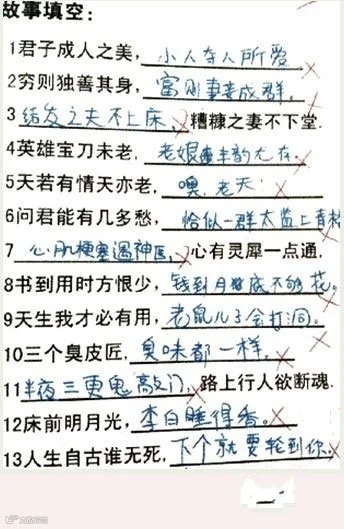 故事填空:
1君子成人之美,小人夺人所爱.
2穷则独善其身,富则妻妾成群.
3结发之夫不上床,糟糠之妻不下堂.
4英雄宝刀未老,老娘丰韵尤存.
5天若有情天亦老,噢,老天
6问君能有几多愁,恰似一群太监上青楼
7心肌梗塞遇神医,心有灵犀一点通.
8书到用时方恨少,钱到月底不够花.
9天生我才必有用,老鼠儿子会打洞.
10三个臭皮匠,臭味都一样.
11半夜三更鬼敲门,路上行人欲断魂.
12床前明月光,李白睡得香.
13人生自古谁无死,下个就要轮到你.